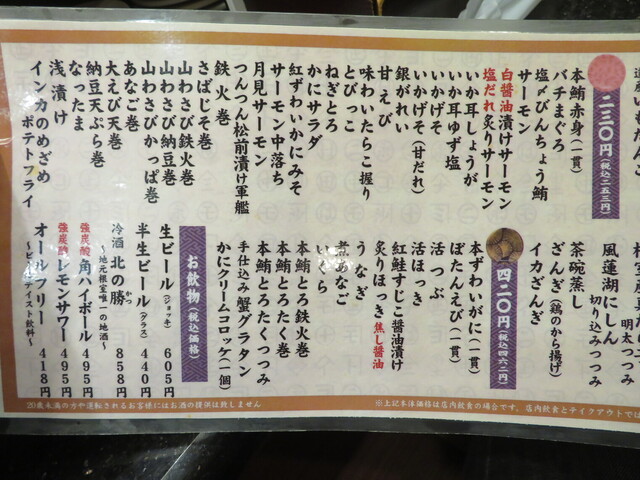 二三〇円(税込二五三円)
本鮪赤身(一貫)
バチまぐろ
塩〆びんちょう鮪
サーモン
白醤油漬けサーモン
塩だれ炙りサーモン
いか耳しょうが
いか耳ゆず塩
いかげそ
いかげそ(甘だれ)
銀がれい
甘えび
味わいたらこ握り
とびっこ
ねぎとろ
かにサラダ
紅ずわいかにみそ
サーモン中落ち
月見サーモン
つんつん松前漬け軍艦
鉄火巻
さばじそ巻
山わさび鉄火巻
山わさび納豆巻
山わさびかっぱ巻
あなご巻
大えび天巻
納豆天ぷら巻
なったま
浅漬け
インカのめざめ
ポテトフライ
明太つつみ
風蓮湖にしん
切り込みつつみ
茶碗蒸し
ざんぎ(鶏のから揚げ)
イカざんぎ
四二〇円(税込四六二円)
本ずわいがに(一貫)
ぼたんえび(一貫)
活つぶ
活ほっき
紅鮭すじこ醤油漬け
炙りほっき焦し醤油
うなぎ
煮あなご
いくら
本鮪とろ鉄火巻
本鮪とろたく巻
本鮪とろたくつつみ
手仕込み蟹グラタン
かにクリームコロッケ(一個)
お飲物(税込価格)
生ビール(ジョッキ) 605円
半生ビール(グラス) 440円
冷酒 北の勝 かつ 858円
~地元根室唯一の地酒~
強炭酸角ハイボール 495円
強炭酸レモンサワー 495円
オールフリー 418円
~ビールテイスト飲料~
20歳未満の方や運転されるお客様にはお酒の提供は致しません
※上記本体価格は店内飲食の場合です。店内飲食とテイクアウトでは